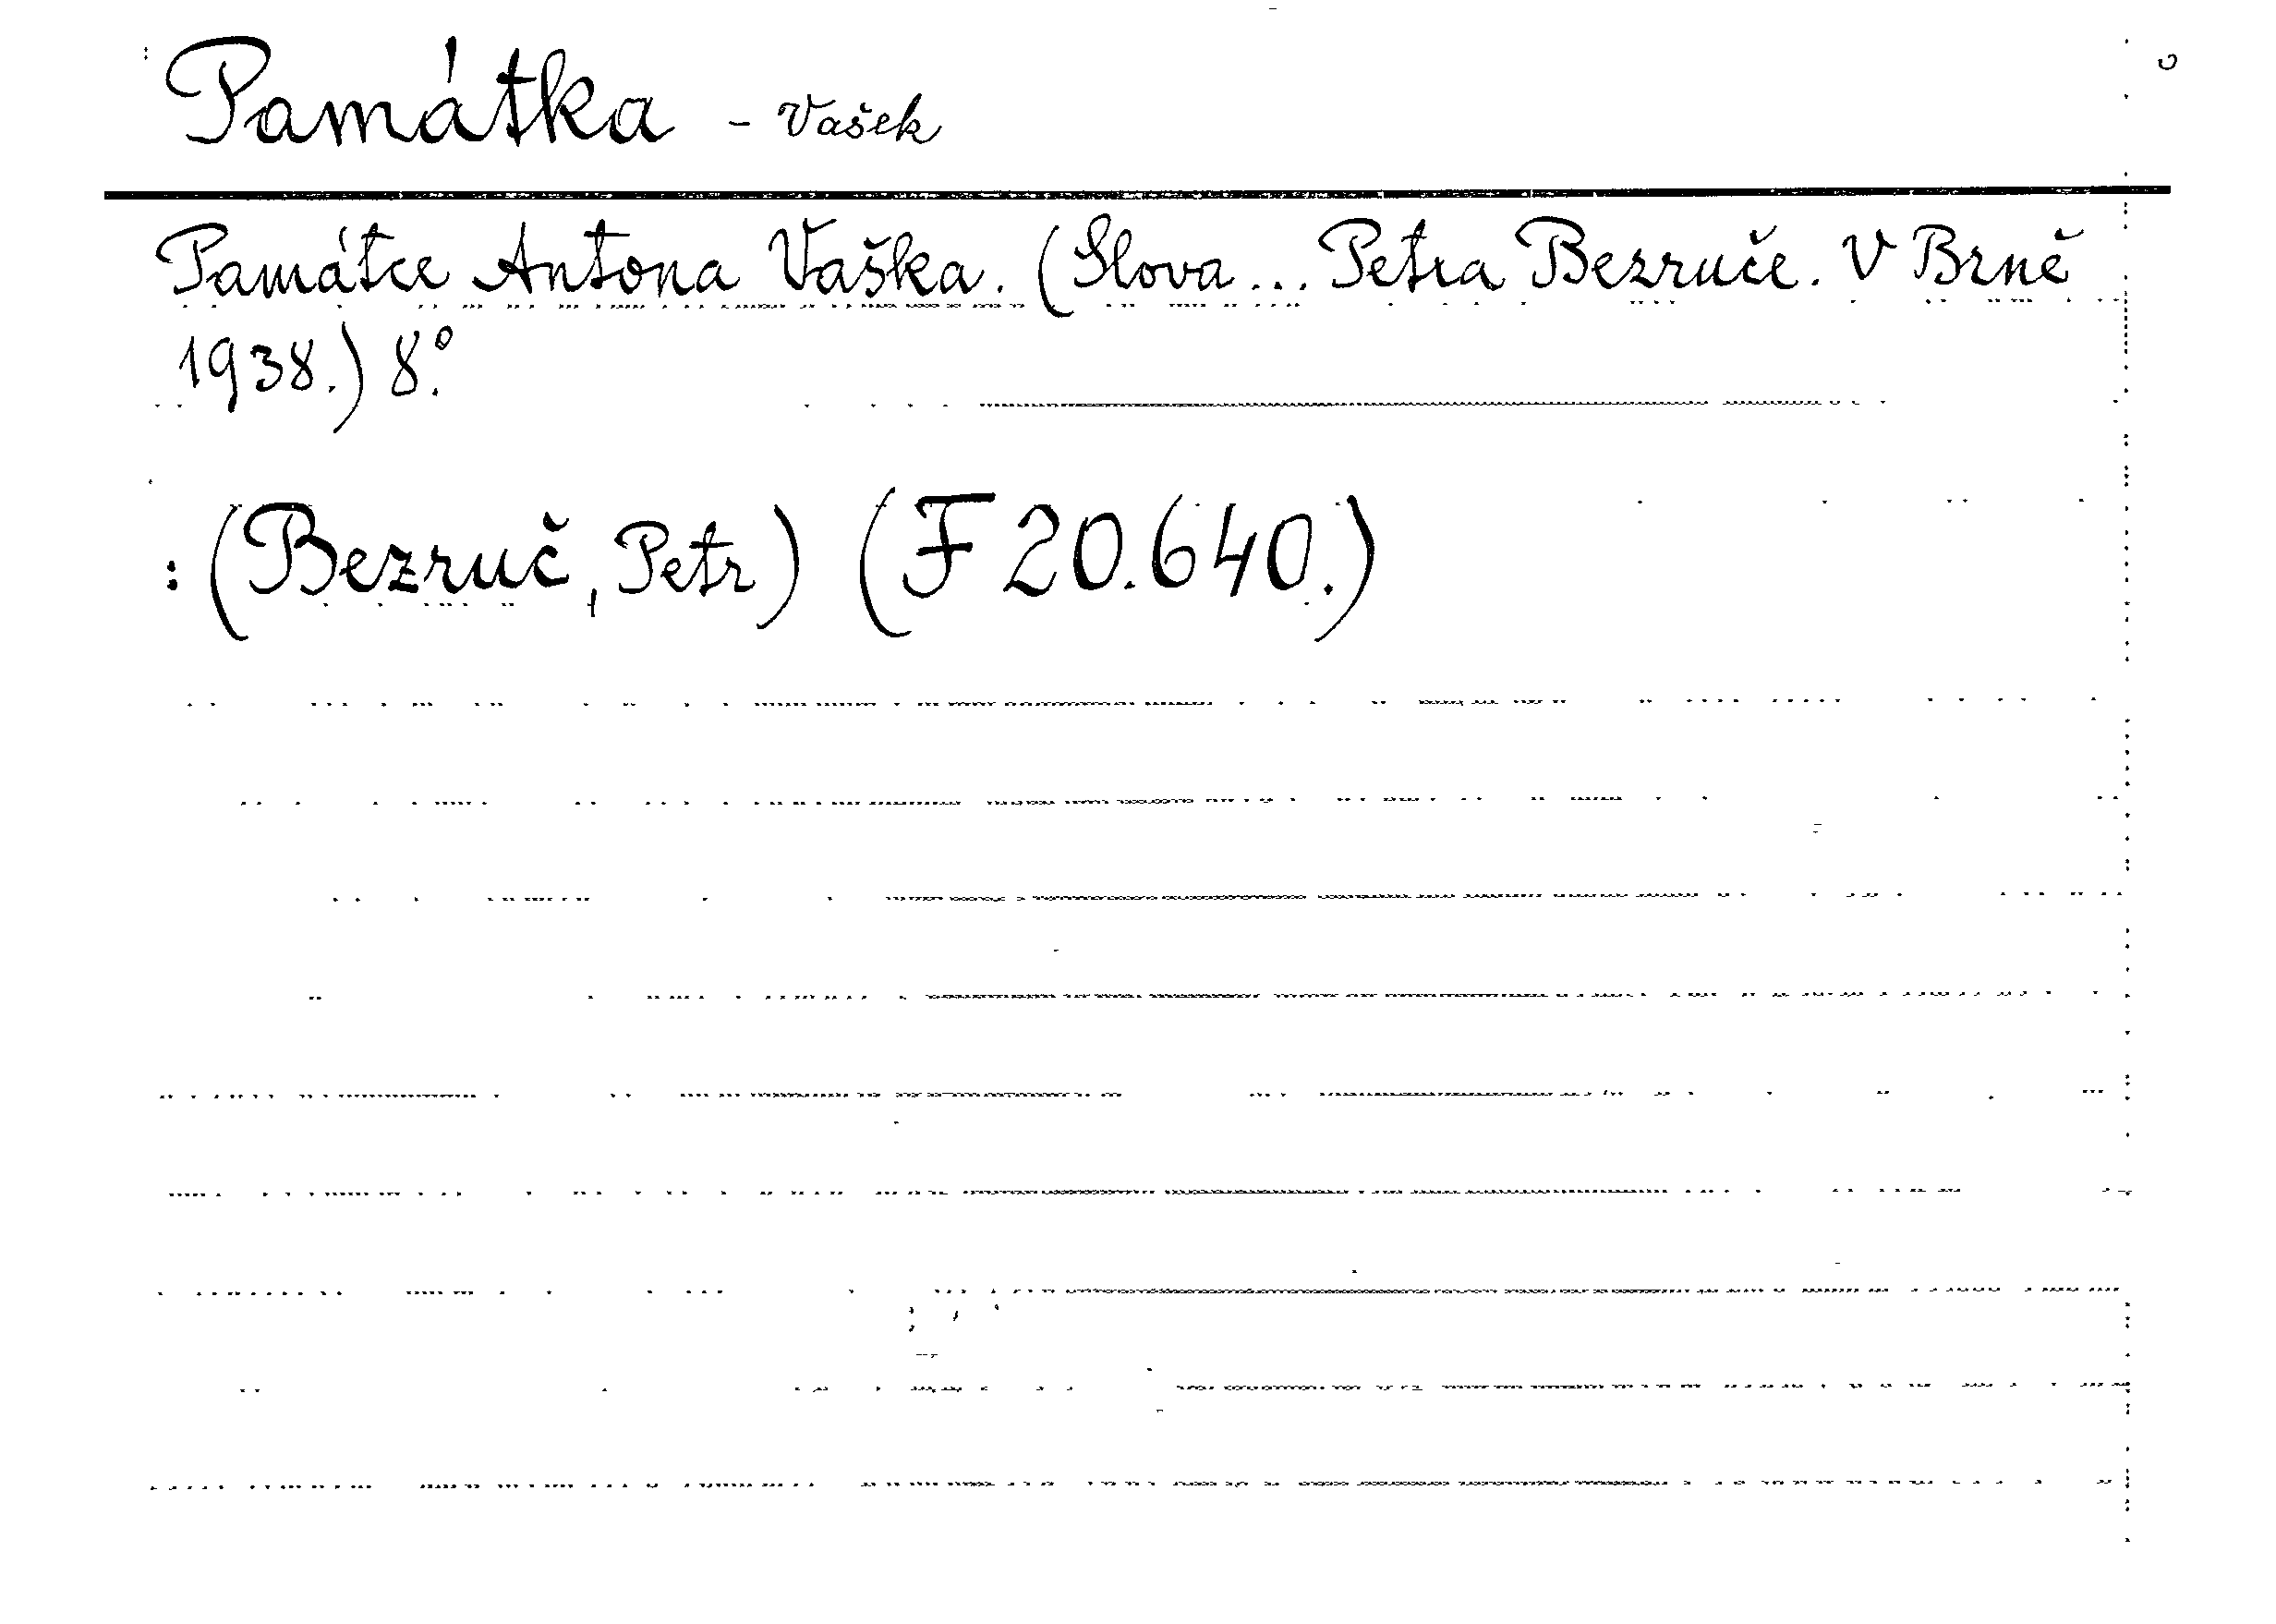 Památka - Vašek
Památce Antona Vaška. (Slova... Petra Bezruče. V Brně
1938.) 8.°
: (Bezruč, Petr) (F 20.640.)